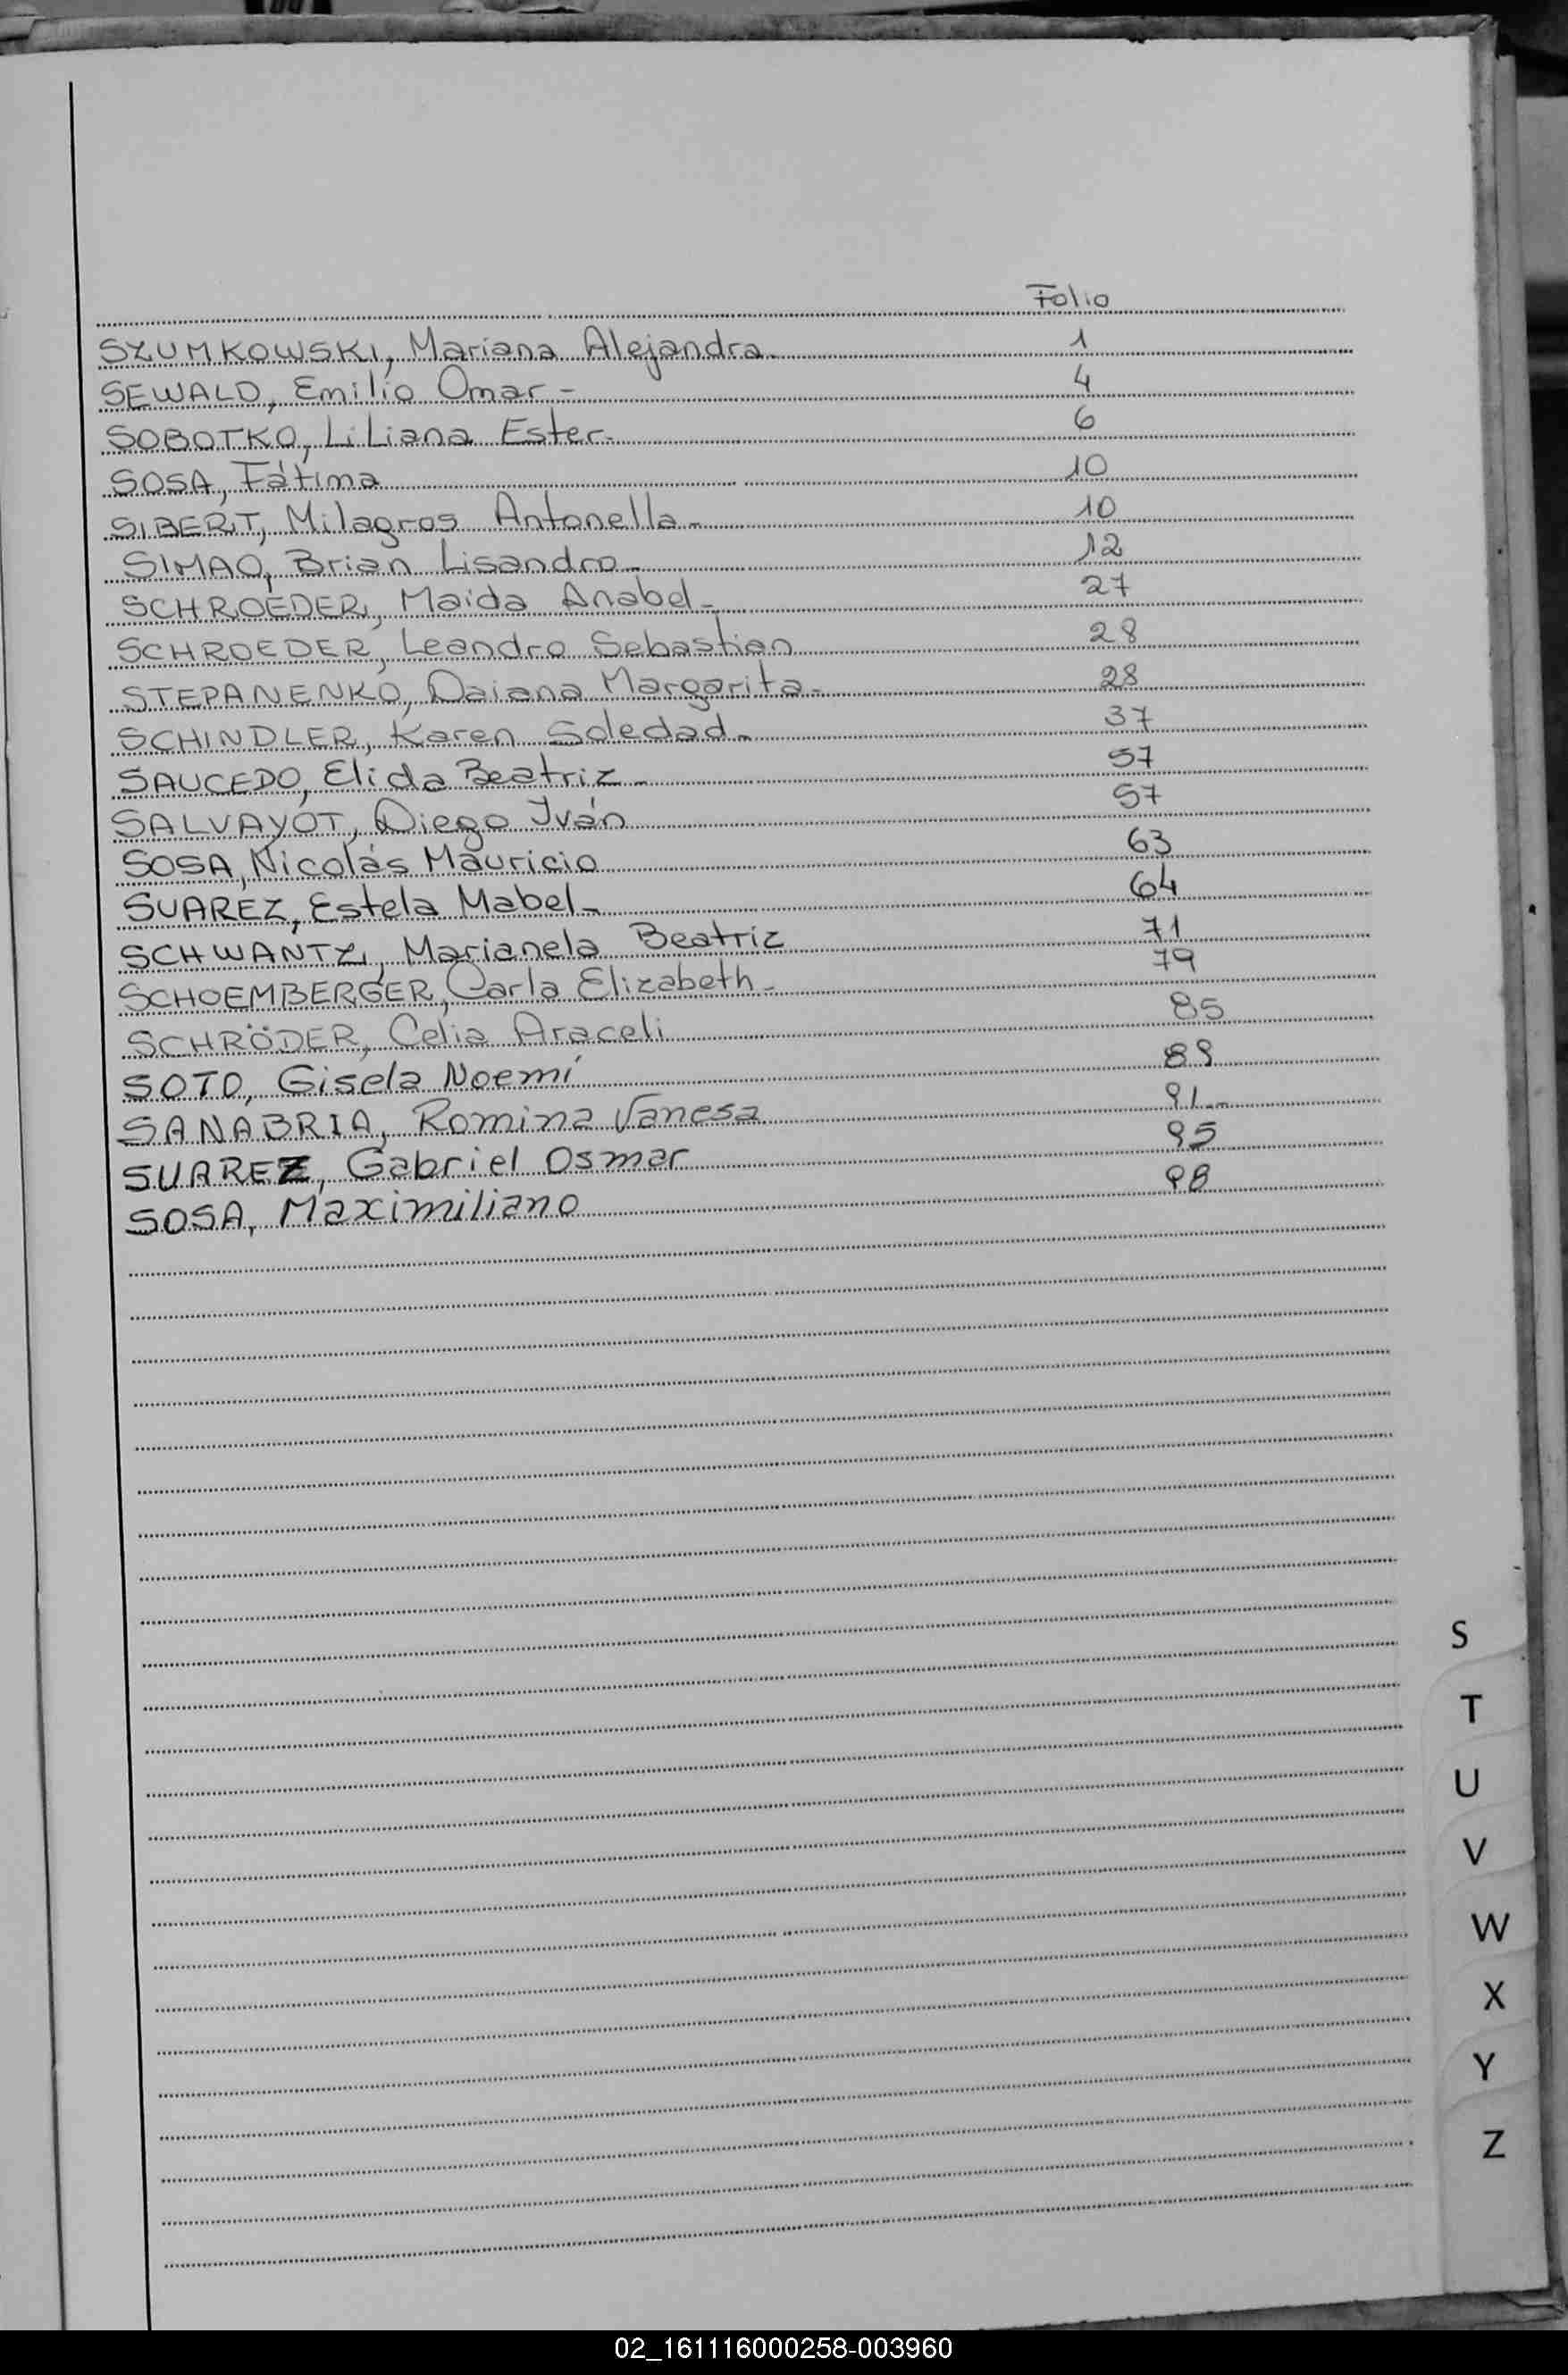 Folio
SZUMKOWSKI, Mariana Alejandra. 1
SEWALD, Emilio Omar - 4
SOBOTKO, Liliana Ester. 6
SOSA, Fátima 10
SIBERT, Milagros Antonella - 10
SIMAO, Brian Lisandro - 12
SCHROEDER, Maida Anabel - 27
SCHROEDER, Leandro Sebastian 28
STEPANENKO, Daiana Margarita - 28
SCHINDLER, Karen Soledad - 37
SAUCEDO, Elida Beatriz - 57
SALVAYOT, Diego Iván 57
SOSA, Nicolás Mauricio 63
SUAREZ, Estela Mabel - 64
SCHWANTZ, Marianela Beatriz 71
SCHOEMBERGER, Carla Elizabeth - 79
SCHRÖDER, Celia Araceli 85
SOTO, Gisela Noemí 89
SANABRIA, Romina Vanesa 91
SUAREZ, Gabriel Osmar 95
SOSA, Maximiliano 98
S
T
U
V
W
X
Y
Z
02_161116000258-003960